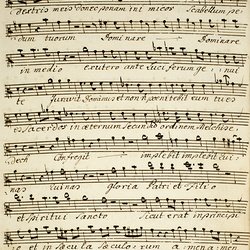 dextris meis donec ponam ini micos scabellum pe
dum tuorum Dominare Dominare
in medio ex utero ante luci forum ge nui
te juravit Dominus et non paenitebit eum tu es
sacerdos in aeternum secundum ordinem Melchise
dech Confregit implebit implebit rui
nas ruinas Gloria Patri et Filio
et Spiritui Sancto Sicut erat in principi
o et in saecula saeculorum a men a men